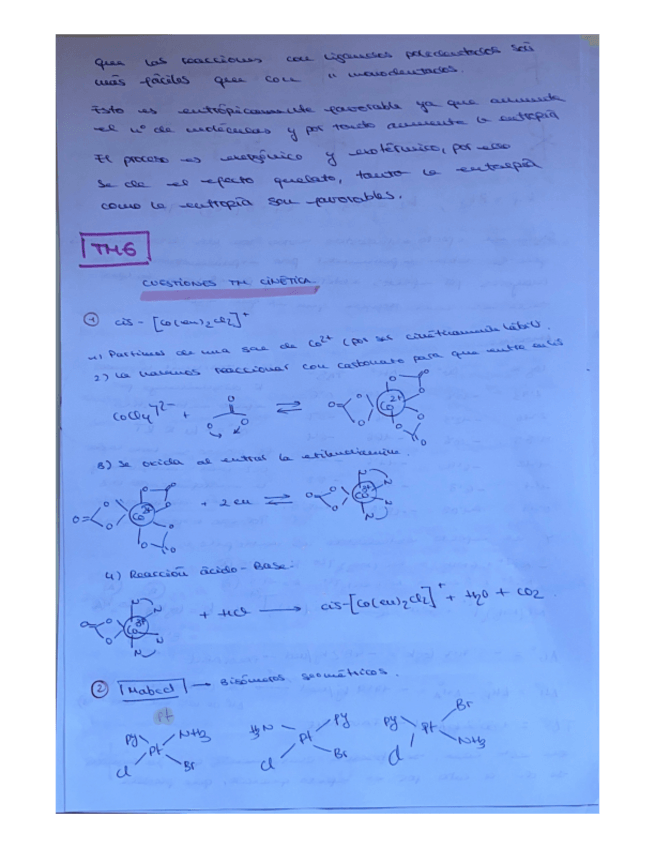 que las reacciones con ligandos polidentados son
más fáciles que con " monodentados.
Esto es entrópicamente favorable ya que aumenta
el nº de moléculas y por tanto aumenta la entropía
El proceso es exergónico y exotérmico, por eso
se da el efecto quelato, tanto la entalpía
como la entropía son favorables.
TM6
CUESTIONES TM CINÉTICA
① cis-[Co(en)2Cl2]+
1) Partimos de una sal de Co2+ (por ser cinéticamente lábil).
2) La hacemos reaccionar con carbonato para que entre en cis
CoCl4]2- + O O O ⇌ O O O Co2+ O O O O
3) Se oxida al entrar la etilendiamina.
O O O Co2+ O O O O + 2 en ⇌ O O O Co3+ N N N N
4) Reacción ácido-Base:
O O O Co3+ N N N N + HCl → cis-[Co(en)2Cl2]+ + H2O + CO2
② [Mabcd] → 3 isómeros geométricos.
Pt
Py NH3 Pt Cl Br
H3N Py Pt Cl Br
Py Br Pt Cl NH3